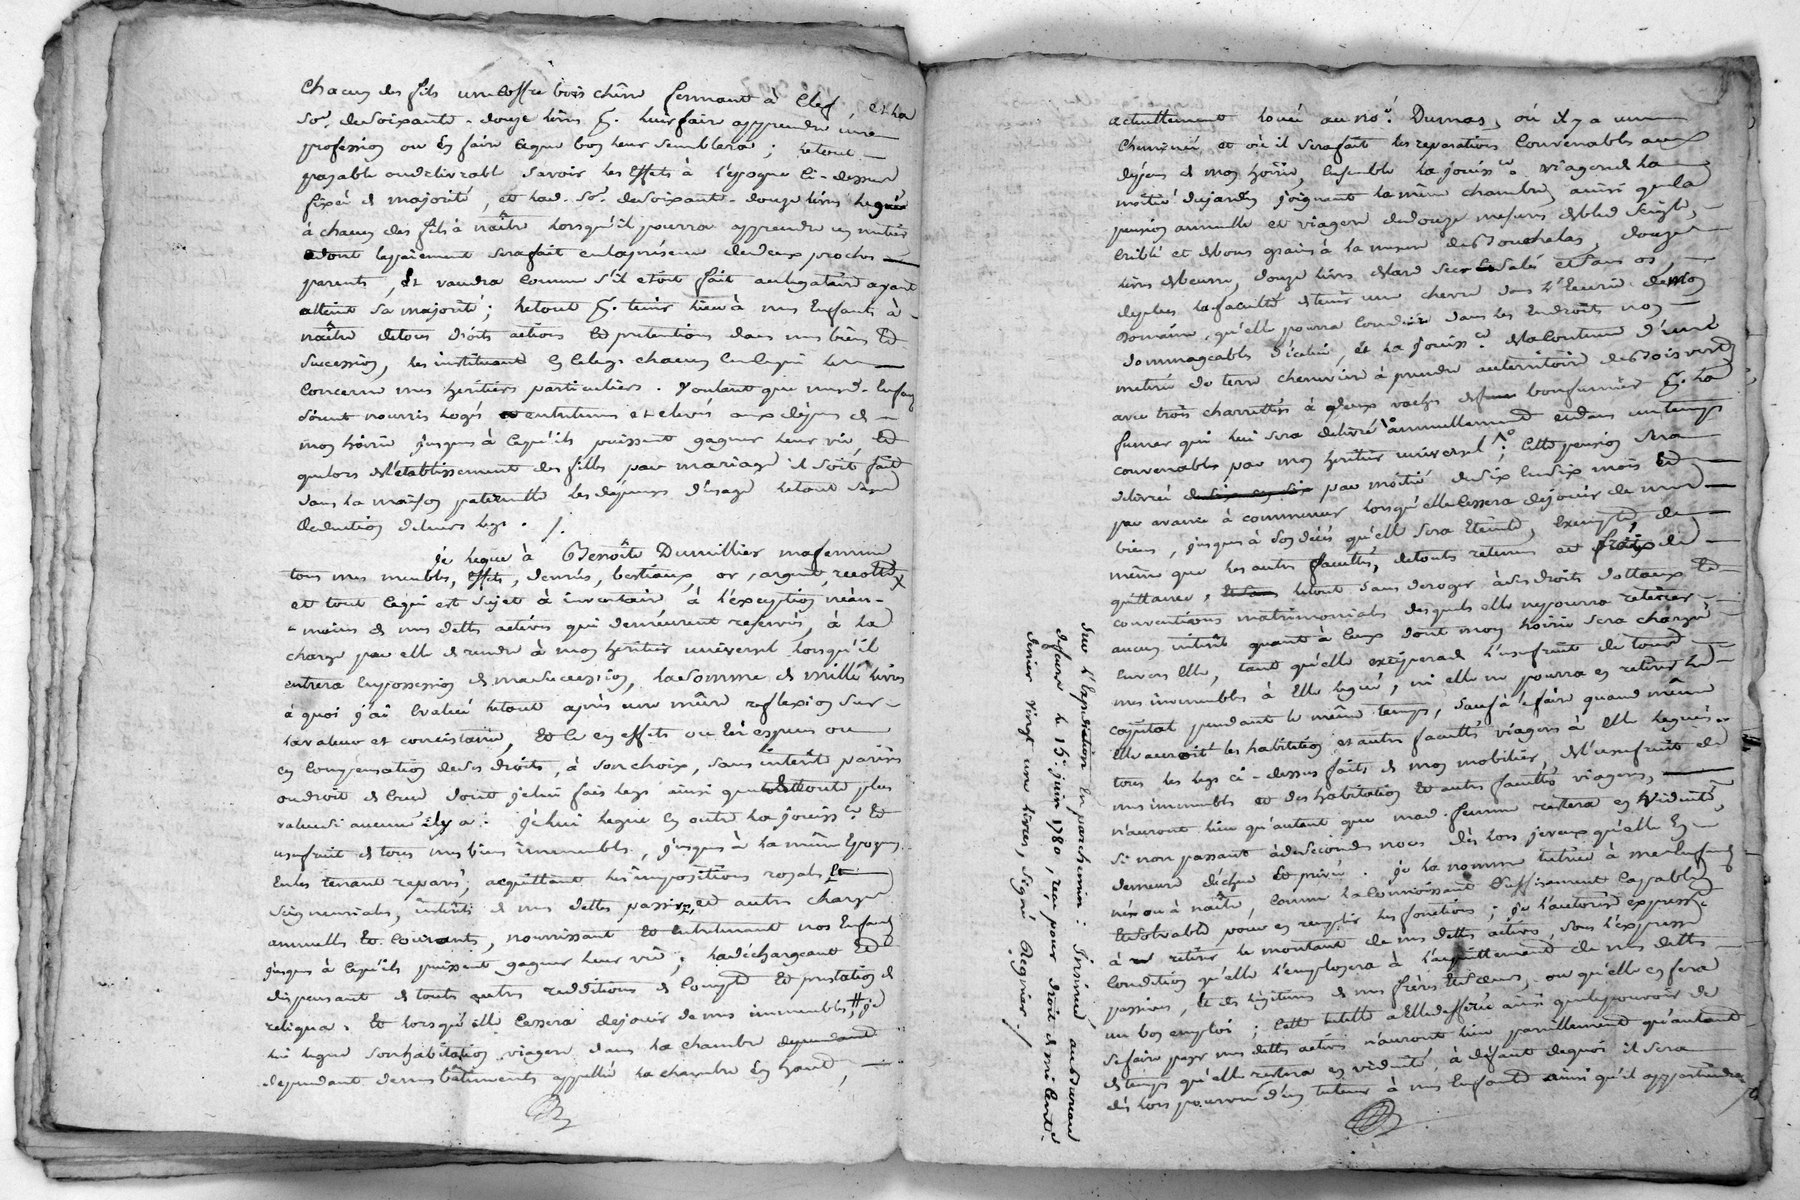 Chacun des fils un coffre bois chêne fermant à Clef, et la
so.e de soixante-douze livres p.r leur faire apprendre une
profession ou en faire ce que bon leur semblera ; le tout
payable ou délivrable savoir les Effets à l'époque Ci-dessus
fixée de majorité, et lad. so.e de soixante-douze livres
à chacun des fils à naître lorsqu'il pourra apprendre un métier
dont le paiement sera fait en la présence de deux proches
parents, Et vaudra comme s'il etoit fait au légataire ayant
atteint sa majorité ; le tout p.r tenir lieu à mes Enfants à
naître de tous droits actions Et prétentions dans mes biens Et
succession, les instituant En ce legs chacun En ce qui le
concerne mes héritiers particuliers. Voulant que mesd. Enfans
soient nourris logés et entretenus et elevés aux dépens de
mon hoirie jusques à ce qu'ils puissent gagner leur vie, Et
que lors de l'etablissement des filles par mariage il soit fait
dans la maison paternelle les dépenses d'usage le tout sans
deduction de leurs legs ./.
Je legue à Benoîte Dumillier ma femme
tous mes meubles, effets, denrées, bestiaux, or, argent, recoltes
et tout ce qui est sujet à inventaire à l'exception néan-
moins de mes dettes actives qui demeurent reservées, à la
charge par elle de rendre à mon héritier universel lorsqu'il
entrera En possession de ma succession, la somme de mille livres
à quoi j'ai Evalué le tout après une mûre reflexion sur
la valeur et consistance, Et ce en effets ou En espèces ou
en compensation de ses droits, à son choix, sans interêt
ou droit de Crue dont je lui fais legs ainsi que de toute plus
value si aucune il y a : je lui legue En outre la jouiss.ce Et
usufruit de tous mes biens immeubles, jusques à la même Epoque
En les tenant reparés, acquittant les impositions royales Et
seigneuriales, interêts de mes dettes passives, et autres charges
annuelles Et Courantes, nourrissant Et Entretenant nos Enfants
jusques à ce qu'ils puissent gagner leur vie ; la déchargeant Et
dispensant de toutes autres redditions de Compte Et prestation de
reliqua. Et lorsqu'elle Cessera de jouir de mes immeubles, # je
lui legue son habitation viagere dans la chambre
dependant de mes bâtiments appellée la chambre En haut,
actuellement louée au no.é Dumas, où il y a une
Cheminée, et où il sera fait les reparations Convenables aux
dépens de mon hoirie, Ensemble la jouiss.ce viagere de la
moitié du jardin joignant la même chambre, ainsi que la
pension annuelle et viagere de douze mesures de bled seigle,
criblé et de bons grains à la mesure de Bouchalas, douze
livres de beurre, douze livres de lard sec salé et sans os,
de plus la faculté de tenir une chevre dans l'Ecurie de mon
Domaine, qu'elle pourra Conduire dans les Endroits non
dommageables d'icelui, et la jouiss.ce de la Contenue d'une
metérée de terre cheneviere à prendre au territoire de Boisvert
avec trois charrettées à deux vaches de bon fumier p.r la
fumer qui lui sera delivré annuellement et dans un temps
convenable par mon héritier universel ; Cette pension sera
delivrée par moitié de six En six mois Et
par avance à commencer lorsqu'elle cessera de jouir de mes
biens, jusques à son décès qu'elle sera Eteinte, Exempte de
même que les autres facultés, de toutes retenues et frais de
quittance, le tout sans deroger à ses droits dottaux Et
conventions matrimoniales desquels elle ne pourra retirer
aucun interêt quant à ceux dont mon hoirie sera chargée
Envers Elle, tant qu'elle exigera l'usufruit de tous
mes immeubles à Elle legué, ni elle ne pourra en retirer le
capital pendant le même temps, sauf à le faire quand même
Elle auroit les habitation et autres facultés viageres à Elle leguées.
tous les legs ci-dessus faits de mon mobilier, de l'usufruit de
mes immeubles et des habitation Et autres facultés viageres,
n'auront lieu qu'autant que mad. femme restera en viduité,
Si non passant à de secondes noces dès lors je veux qu'elle En
demeure déchue Et privée. Je la nomme tutrice à mes Enfans
nés ou à naître, comme la Connoissant suffisamment Capable
Et solvable pour en remplir les fonctions ; je l'autorise expressé
à retirer le montant de mes dettes actives, sous l'expresse
Condition qu'elle l'employera à l'acquittement de mes dettes
passives, Et des légitimes de mes frères Et soeurs, ou qu'elle en fera
un bon emploi ; Cette tutelle à Elle defférée ainsi que le pouvoir de
se faire payer mes dettes actives n'auront lieu pareillement qu'autant
de temps qu'elle restera en viduité, à défaut de quoi il sera
dès lors pourvu d'un tuteur à mes Enfants ainsi qu'il appartiendra
Sur l'Expédition en parchemin : Insinué au bureau
de feurs le 15e juin 1780, reçu pour droit de mi Centie
denier vingt une livres, signé Regnier ./